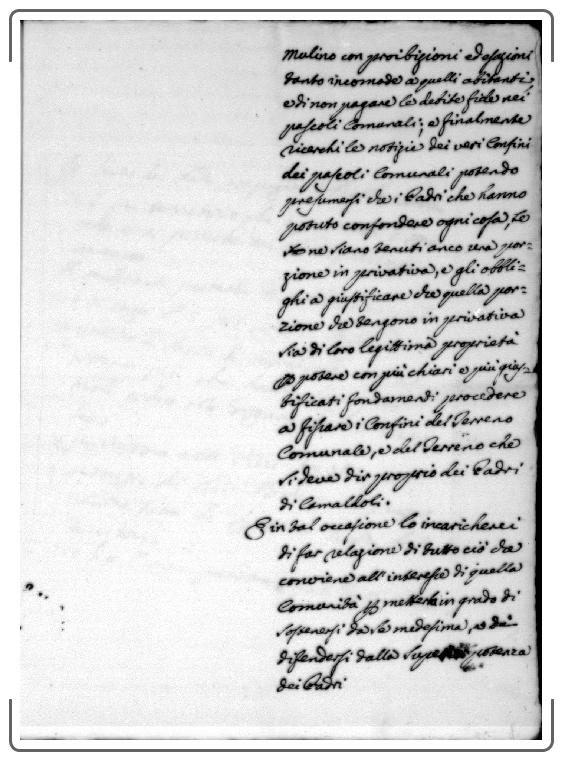 Mulino con proibizioni ed esazioni
tanto incomode a quelli abitanti,
e di non pagare le debite fide nei
pascoli Comunali; e finalmente
ricerchi le notizie dei veri Confini
dei pascoli Comunali potendo
presumersi che i Padri che hanno
potuto confondere ogni cosa, se
ne siano tenuti anco vera por=
zione in privativa, e gli obbli=
ghi a giustificare che quella por=
zione che tengono in privativa
sia di loro legittima proprietà
potere con più chiari e più gius=
tificati fondamenti procedere
a fissare i Confini del Terreno
Comunale, e del Terreno che
si deve dir proprio dei Padri
di Camaldoli.
E in tal occasione lo incaricherei
di far relazione di tutto ciò che
conviene all'interesse di quella
Comunità p mettersi in grado di
sostenersi da se medesima, e di
difendersi dalla potenza
dei Padri